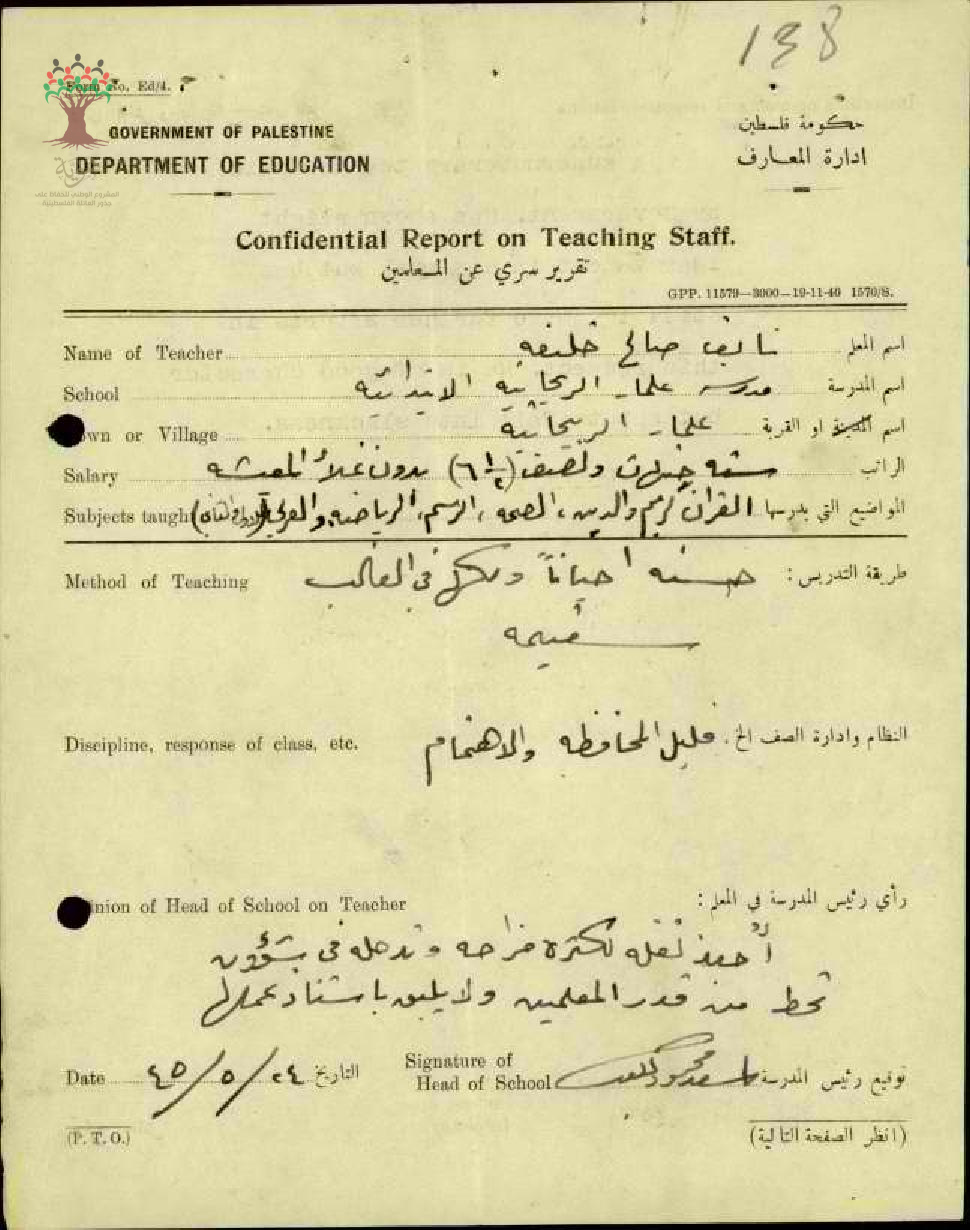 138
Form No. Ed/4.
GOVERNMENT OF PALESTINE
DEPARTMENT OF EDUCATION
حكومة فلسطين
ادارة المعارف
المشروع الوطني للحفاظ على
جذور العائلة الفلسطينية
Confidential Report on Teaching Staff.
تقرير سري عن المعلمين
GPP. 11579—3000—19-11-40 1570/S.
Name of Teacher نايف صالح خليفه اسم المعلم
School مدرسة علمار الريحانية الابتدائية اسم المدرسة
Town or Village علمار الريحانية اسم المدينة او القرية
Salary ستة جنيهات ونصف (٦ ١/٢) بدون غلاء المعيشه الراتب
Subjects taught القرآن الكريم والدين، الصحه، الرسم، الرياضه، والعربي المواضيع التي يدرسها
Method of Teaching حسنه احياناً ولكن في الغالب طريقة التدريس :
سقيمه
Discipline, response of class, etc. قليل المحافظه والاهتمام النظام وادارة الصف الخ.
Opinion of Head of School on Teacher رأي رئيس المدرسة في المعلم :
أحبذ نقله لكثرة مزاحه وتدخله في شؤون
تحط من قدر المعلمين ولا يليق باستاذ عملها
Date ٢٤/٥/٤٥ التاريخ
Signature of
Head of School توقيع رئيس المدرسة
(P. T. O.) (انظر الصفحة التالية)